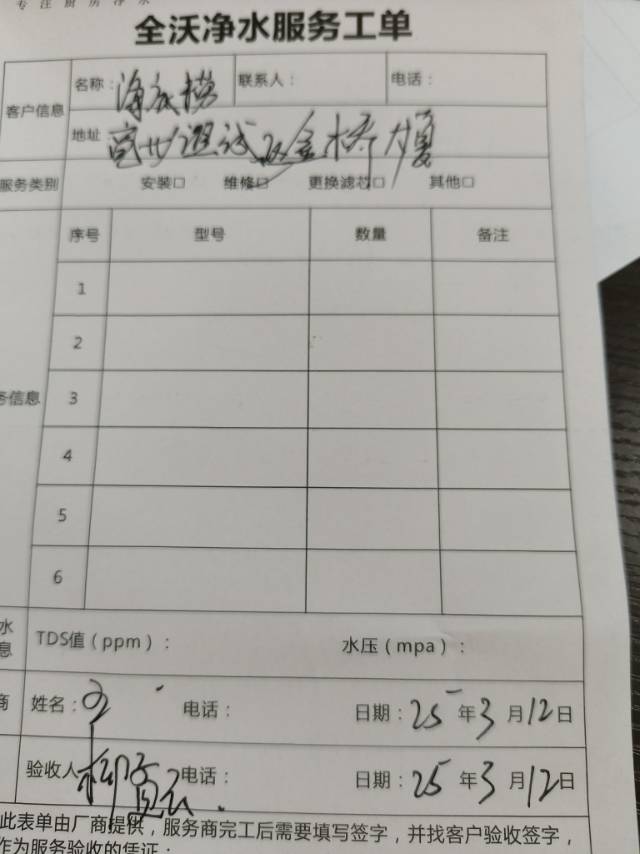 专注厨房净水
全沃净水服务工单
客户信息
名称：
联系人：
电话：
地址
金桥大厦
服务类别
安装□ 维修□ 更换滤芯□ 其他□
务信息
序号 型号 数量 备注
1
2
3
4
5
6
水
息
TDS值（ppm）： 水压（mpa）：
商
姓名： 电话： 日期：25年3月12日
验收人 电话： 日期：25年3月12日
此表单由厂商提供，服务商完工后需要填写签字，并找客户验收签字，
作为服务验收的凭证；